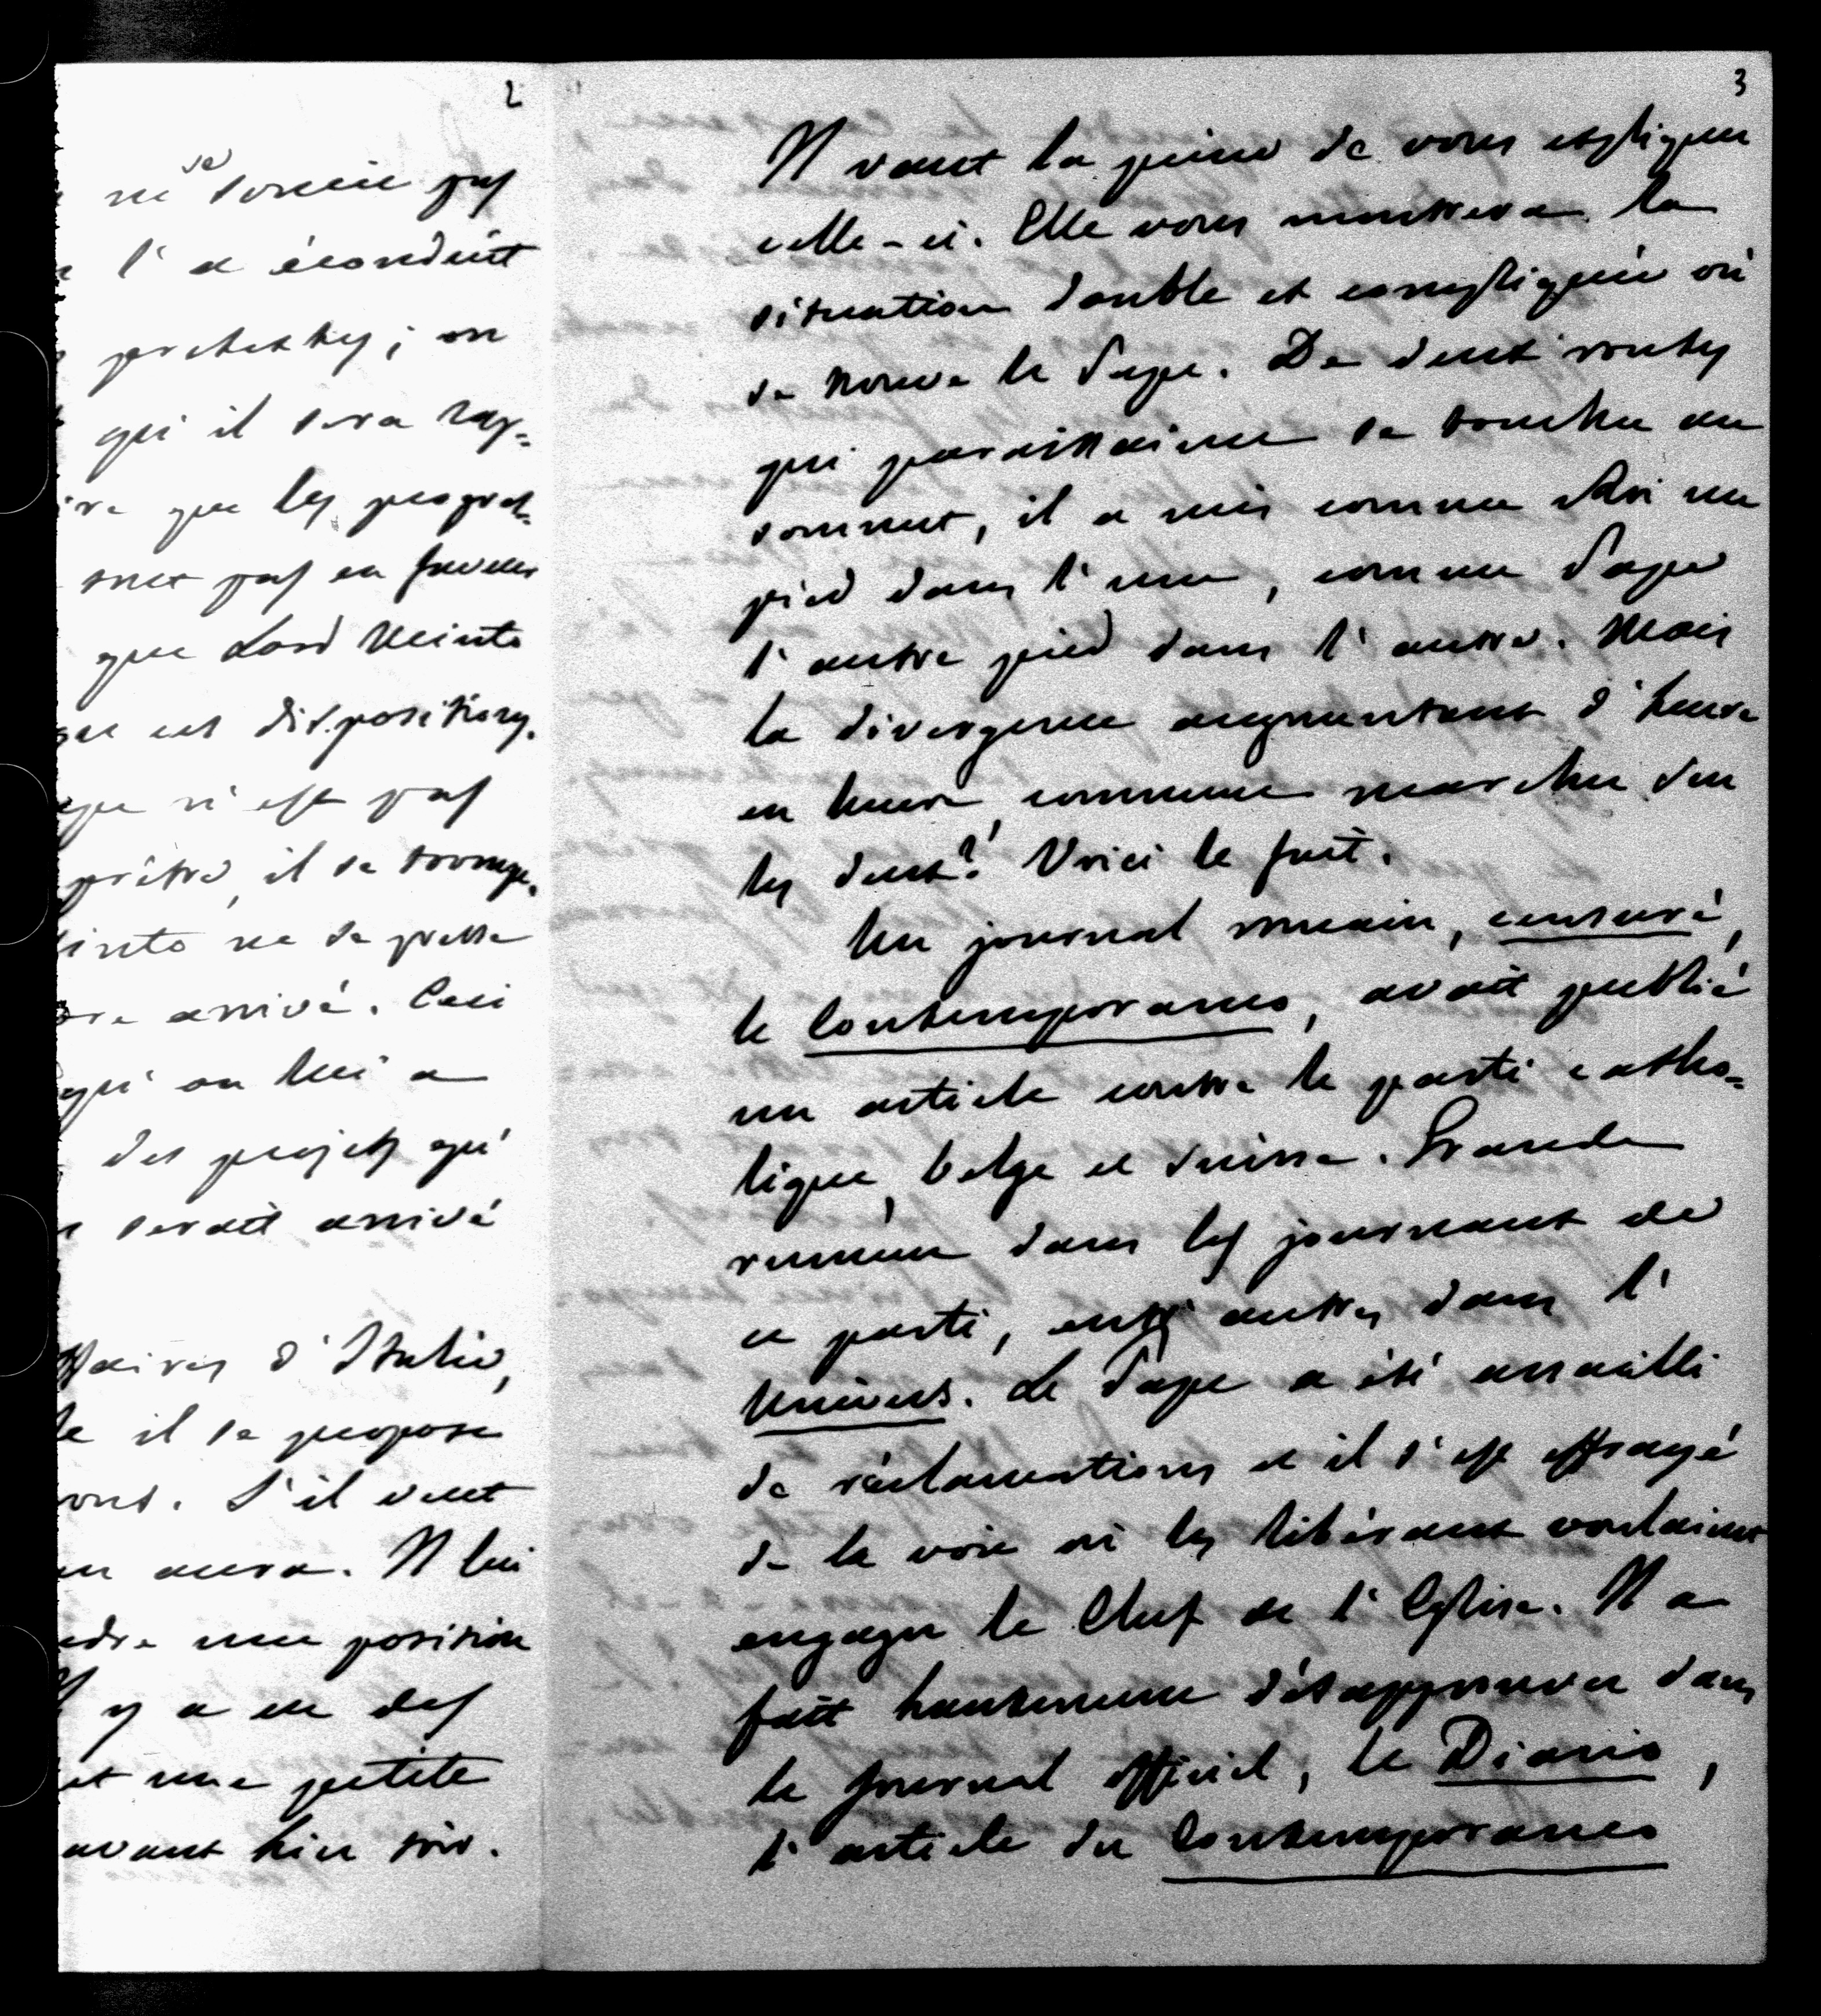 2
se
ne soucie pas
l'a éconduit
prétextes; on
qui il sera rap-
que les progrès
met pas en faveur
que Lord Minto
ces dispositions.
n'est pas
prêtre, il se soumge.
into ne se presse
arrivé. Ceci
qui on lui a
des projets qu'
serait arrivé
d'Italie,
il se propose
S'il veut
aura. Il lui
une position
y a eu des
et une petite
avant hier soir.
3
Il vaut la peine de vous expliquer
celle-ci. Elle vous montrera la
situation double et compliquée où
se trouve le Pape. De deux routes
qui paraissaient se toucher au
sommet, il a mis comme Roi un
pied dans l'une, comme Pape
l'autre pied dans l'autre. Mais
la divergence augmentant d'heure
en heure, comment marcher sur
les deux? Voici le fait.
Un journal romain, censuré,
le Contemporaneo, avait publié
un article contre le parti catho-
lique, belge et suisse. Grande
rumeur dans les journaux de
ce parti, entre autres dans l'
Univers. Le Pape a été assailli
de réclamations et il s'est effrayé
de la voie où les libéraux voulaient
engager le Chef de l'Eglise. Il a
fait hautement désapprouver dans
le journal officiel, le Diario,
l'article du Contemporaneo